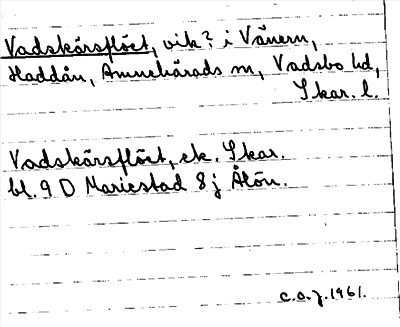 Vadskärsflöet, vik? i Vänern,
Haddån, Amnehärads sn, Vadsbo hd,
Skar. l.
Vadskärsflöet, ek. Skar.
bl. 9 D Mariestad 8 j Ålön.
C.O.J. 1961.